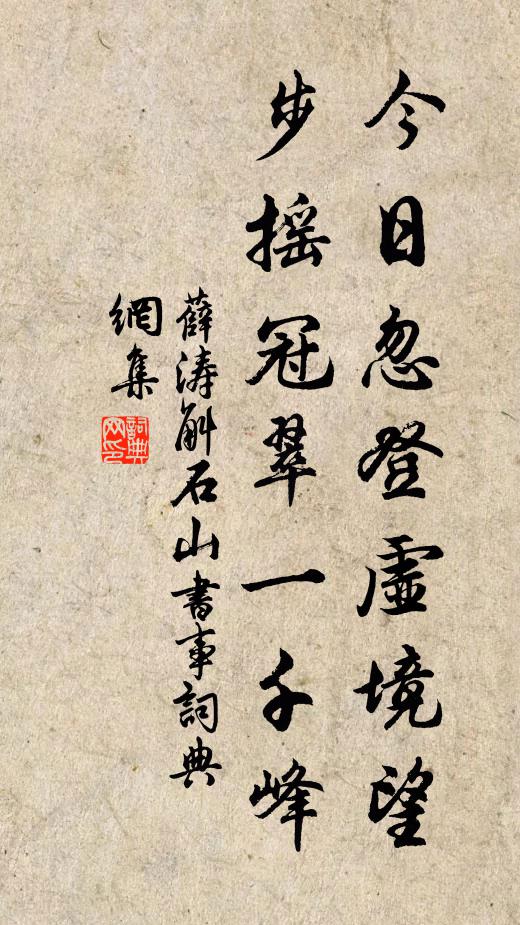 今日忽登虛境望
步搖冠翠一千峰
薛濤斛石山書事詞典
網集
詞典網印